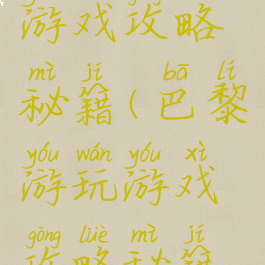 游戏攻略
mì jí bā lí
秘籍(巴黎
yóu wán yóu xì
游玩游戏
gōng lüè mì jí
攻略秘籍